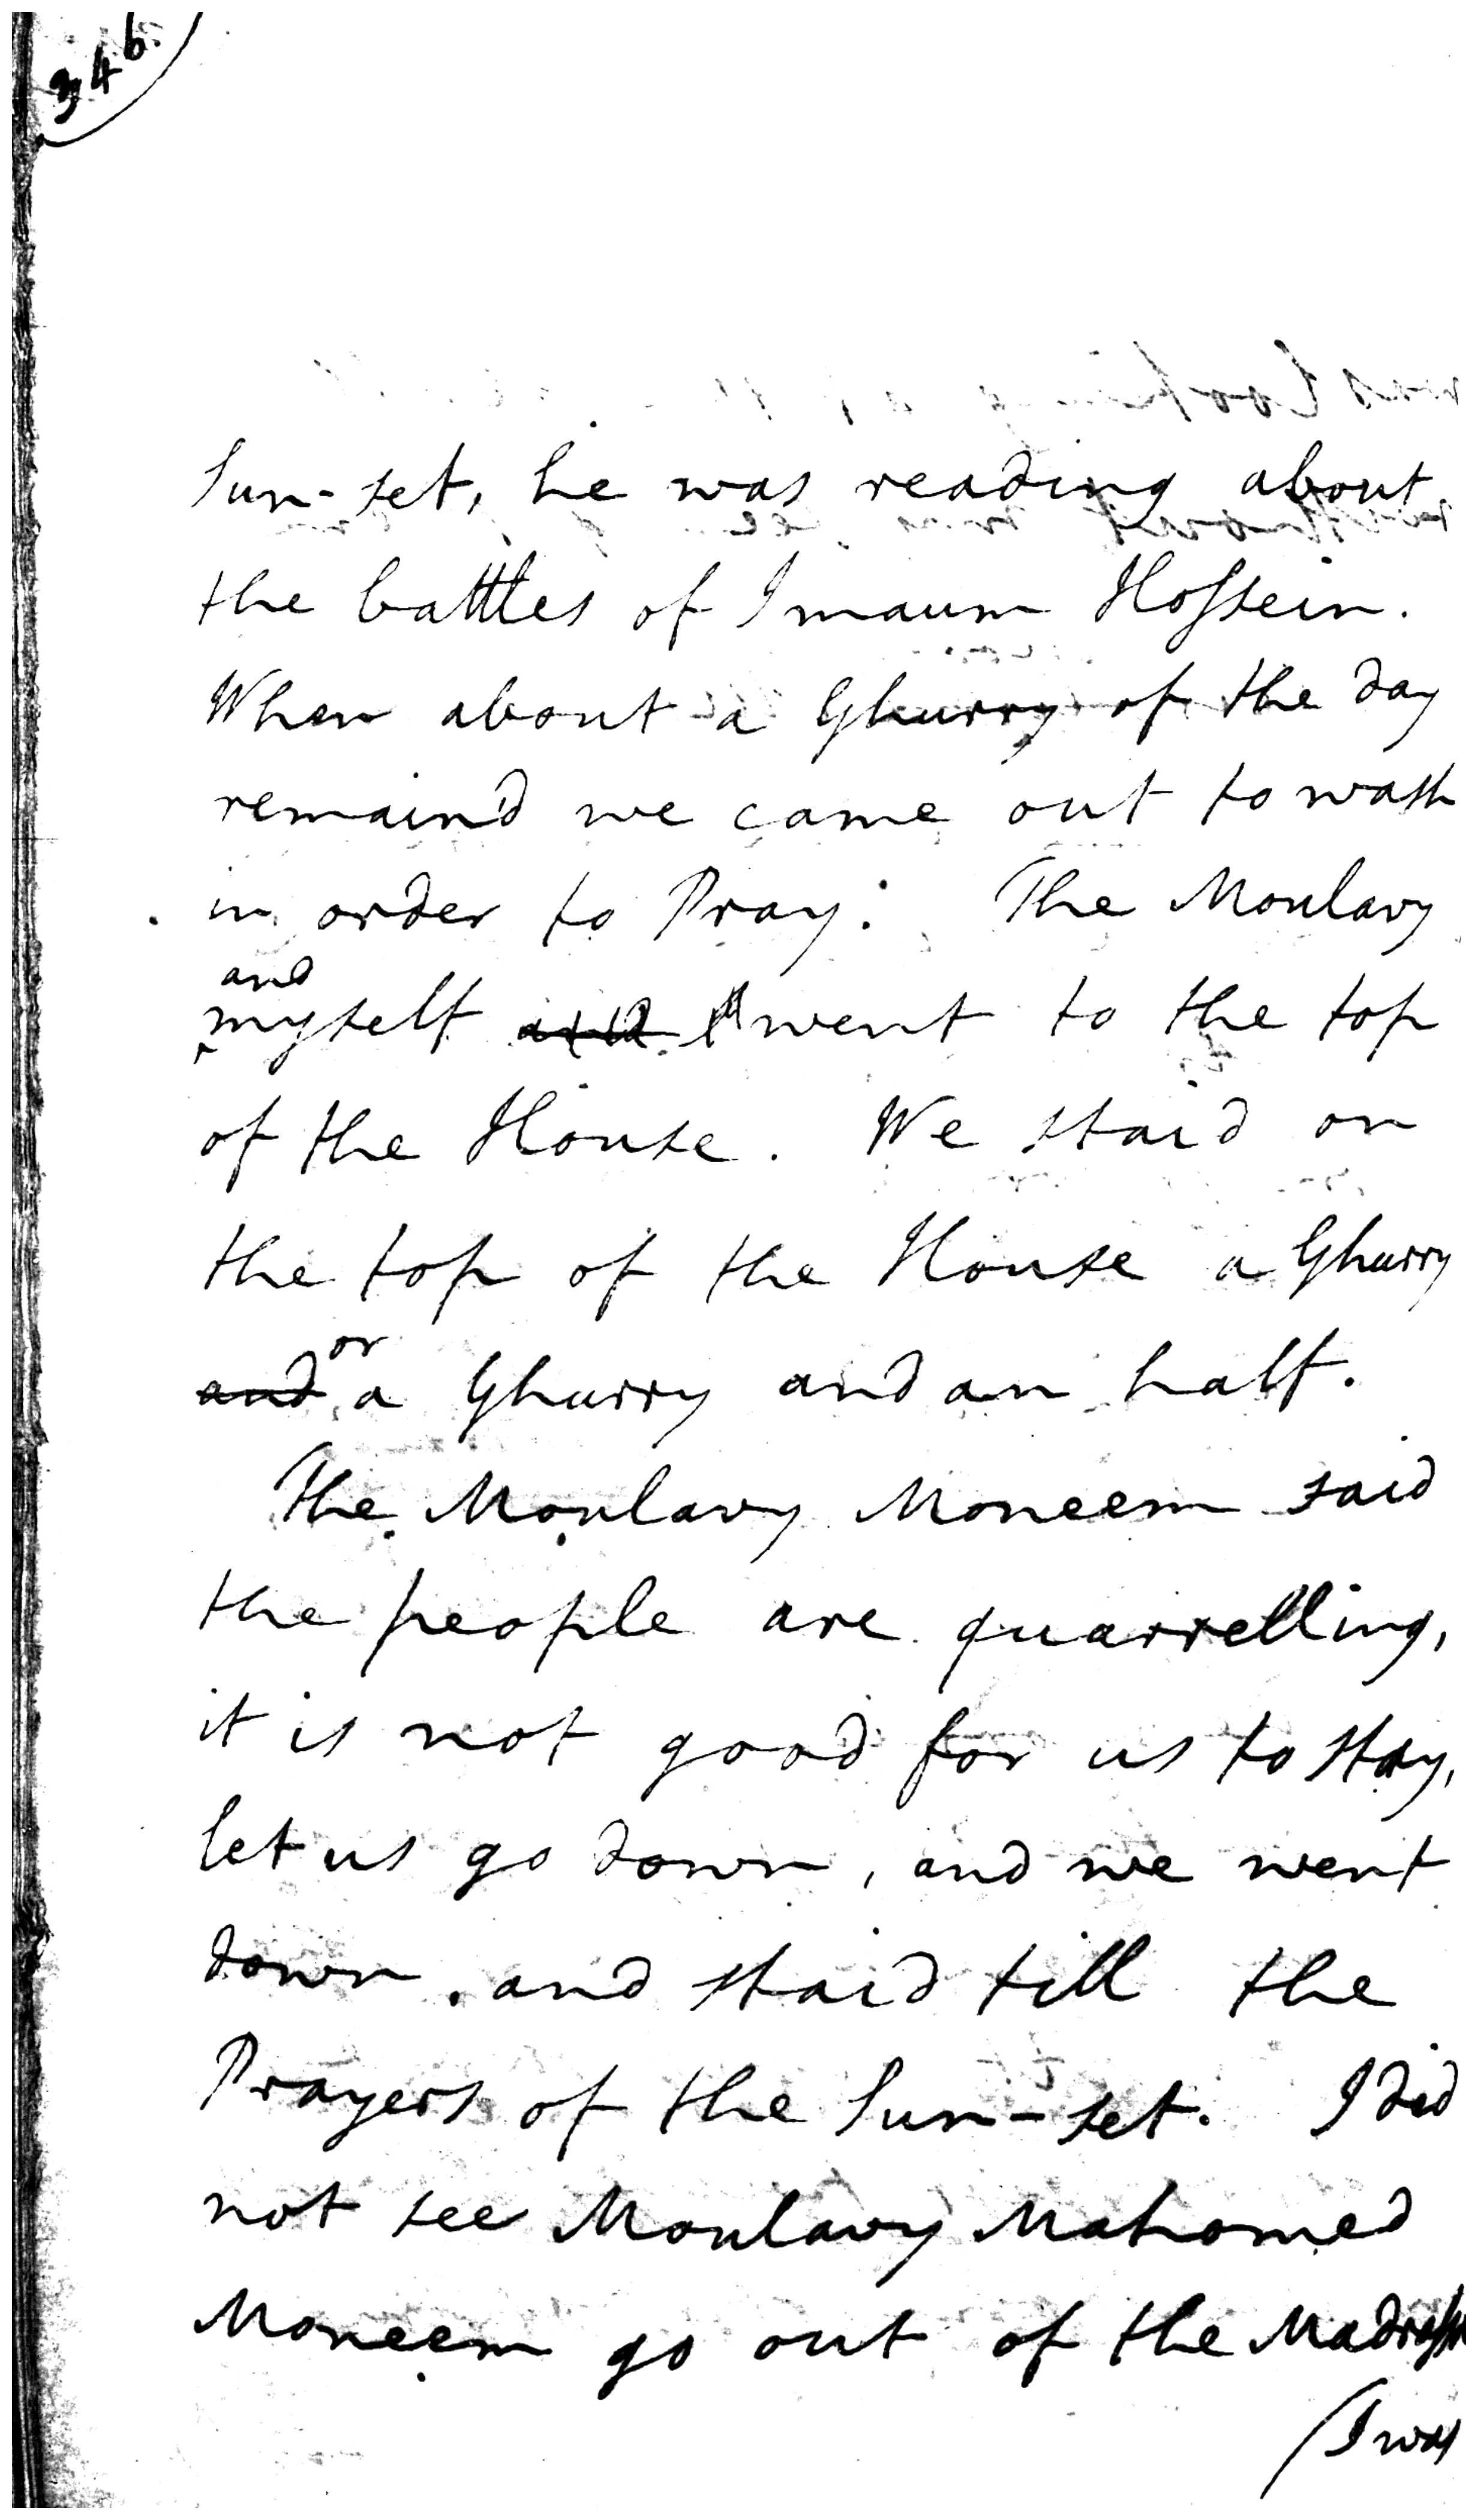 346.
Sun-set, he was reading about
the battles of Imaum Hossein.
When about a Ghurry of the day
remain'd we came out to wash
in order to Pray. The Moulavy
and
myself and went to the top
of the House. We staid on
the top of the House a Ghurry
and or a Ghurry and an half.
The Moulavy Moneem said
the people are quarrelling,
it is not good for us to stay,
let us go down, and we went
down. and staid till the
Prayers of the Sun-set. I did
not see Moulavy Mahomed
Moneem go out of the
(I was